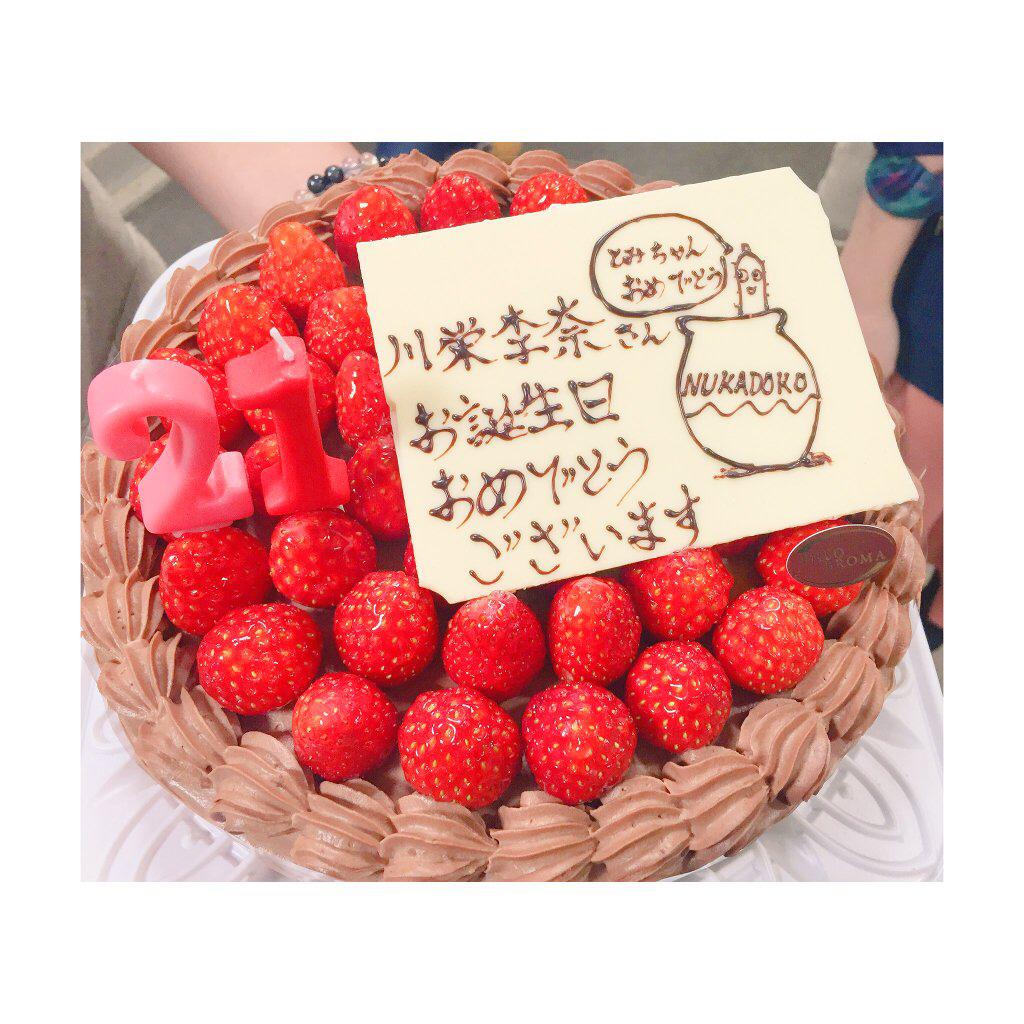 とみちゃん
おめでとう
川栄李奈さん
お誕生日
おめでとう
ございます
NUKADOKO
21
AROMA